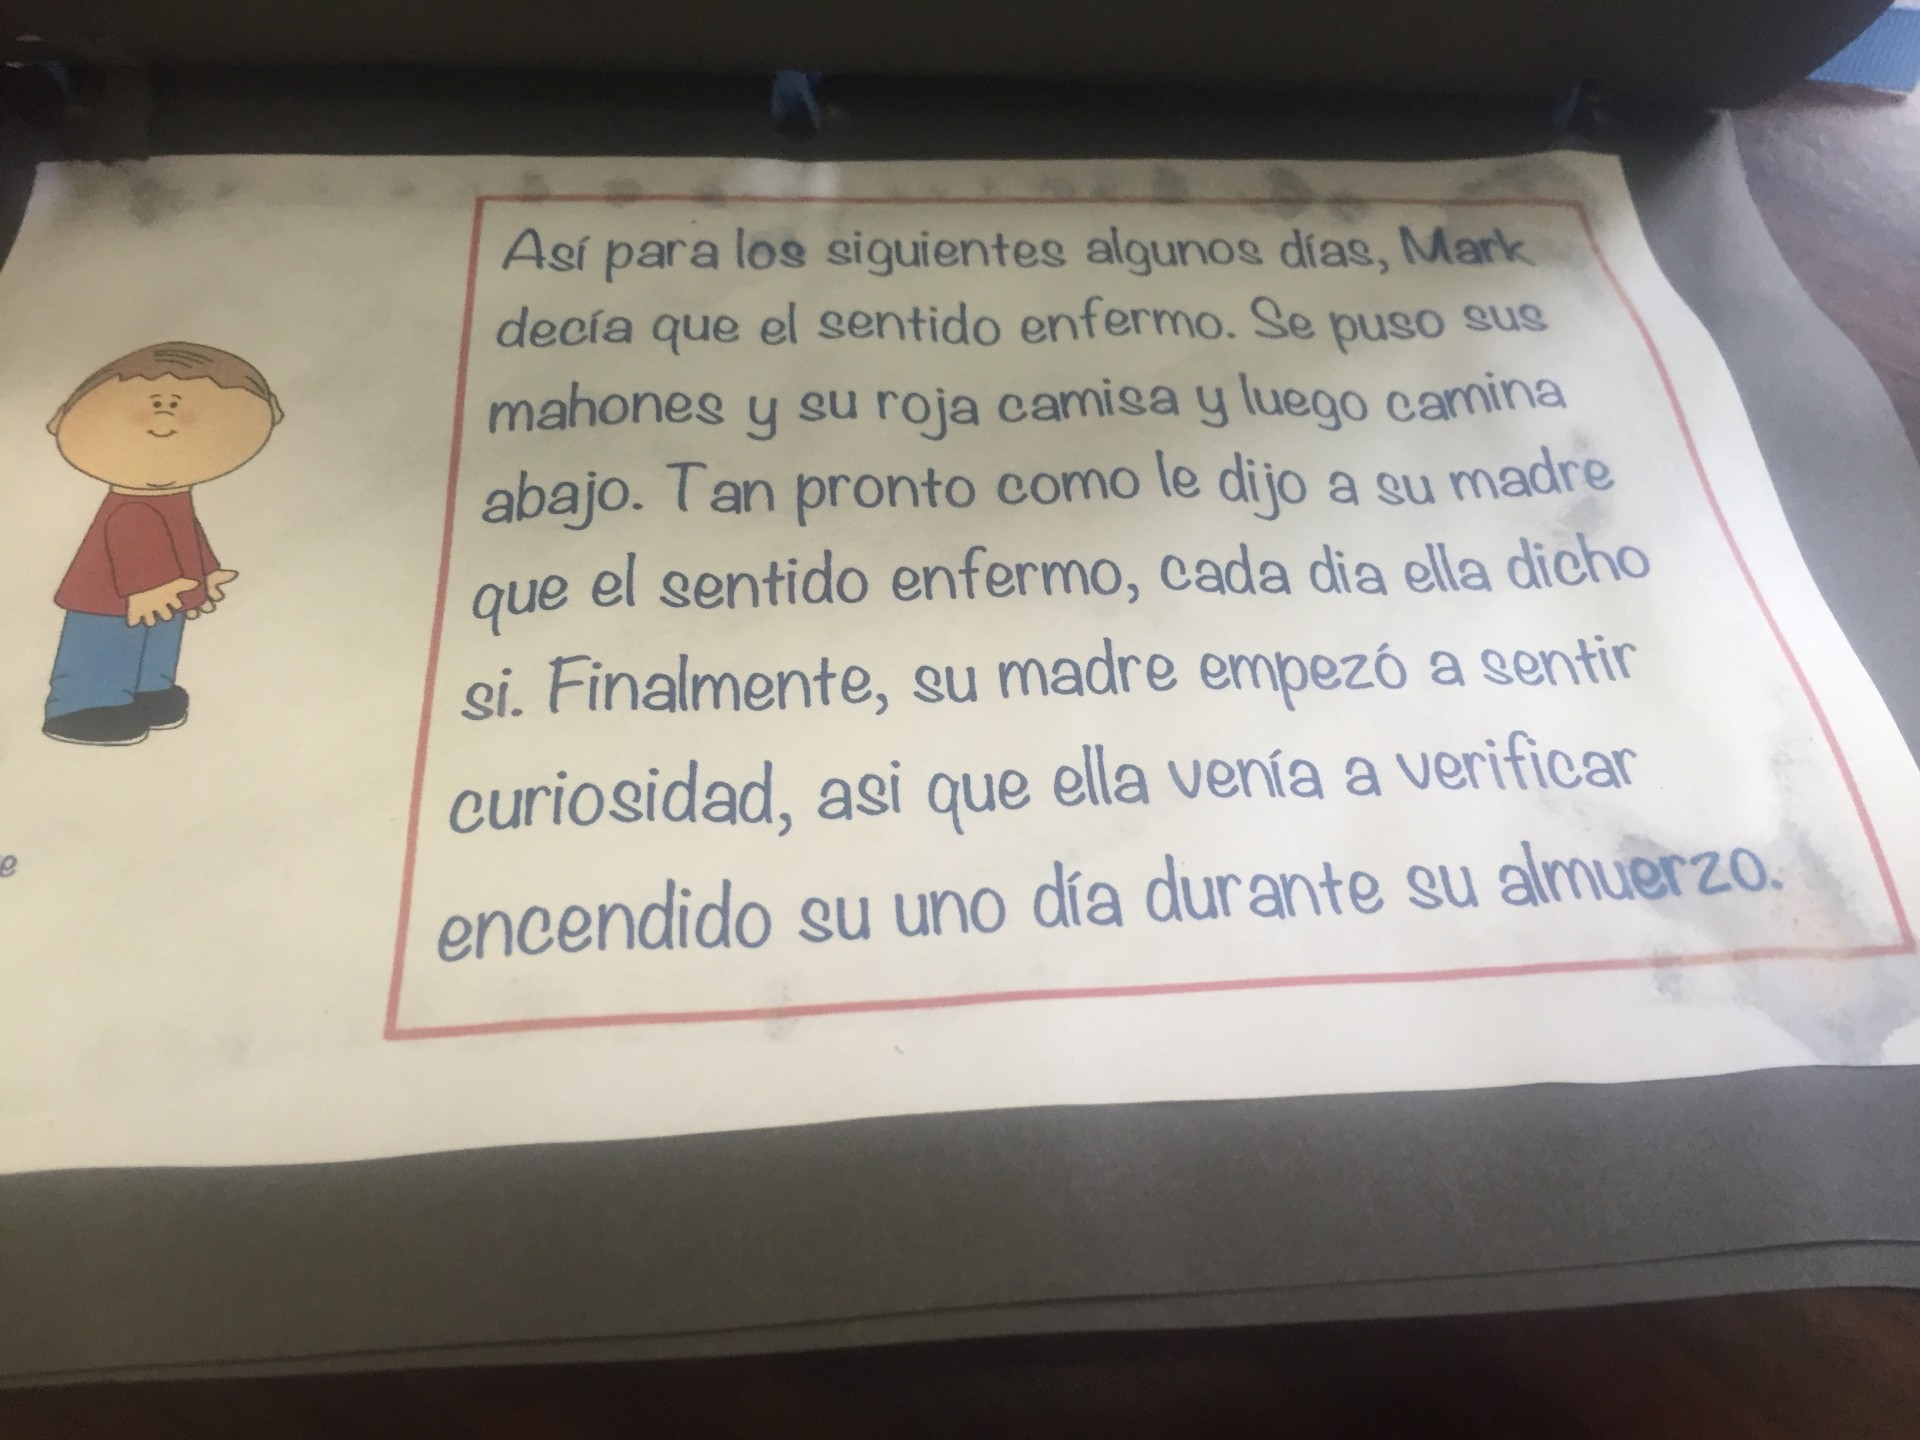 Así para los siguientes algunos días, Mark
decía que el sentido enfermo. Se puso sus
mahones y su roja camisa y luego camina
abajo. Tan pronto como le dijo a su madre
que el sentido enfermo, cada dia ella dicho
si. Finalmente, su madre empezó a sentir
curiosidad, asi que ella venía a verificar
encendido su uno día durante su almuerzo.
e